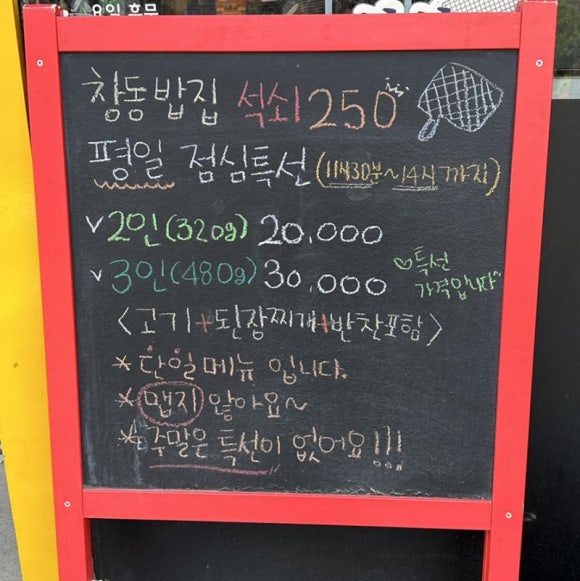 요일 휴무
창동밥집 석쇠250
평일 점심특선 (11시30분~14시까지)
∨ 2인(320g) 20,000
∨ 3인(480g) 30,000
♡특선
가격입니다~
<고기+된장찌개+반찬포함>
* 단일메뉴 입니다.
* 맵지 않아요~
* 주말은 특선이 없어요!!!